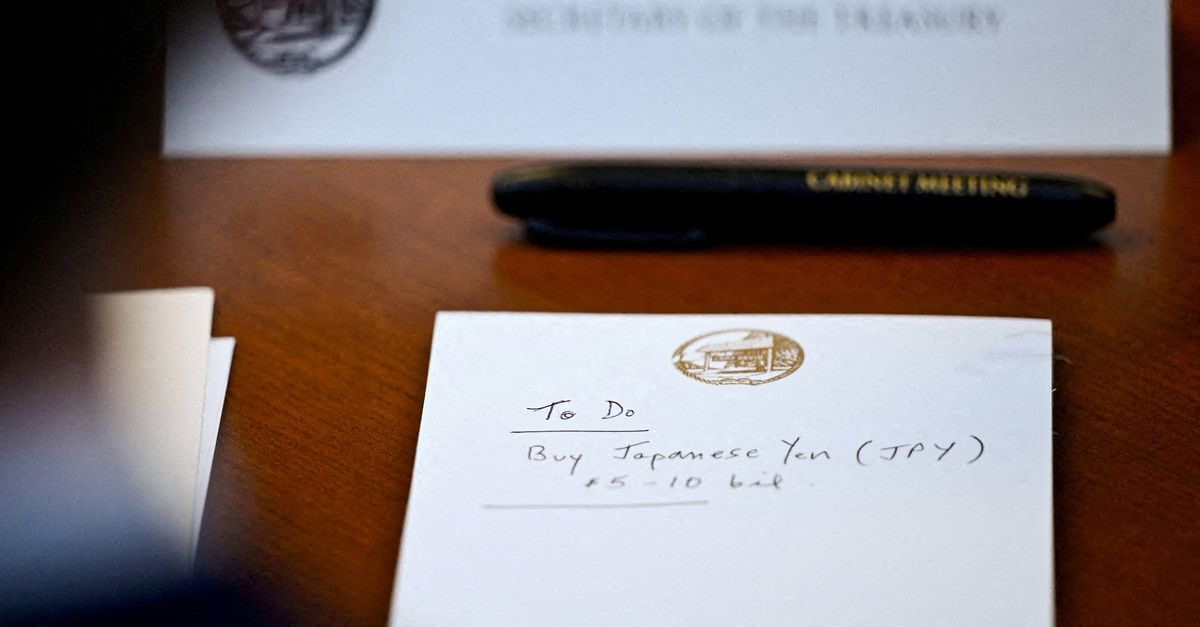 SECRETARY OF THE TREASURY
CABINET MEETING
To Do
Buy Japanese Yen (JPY)
$5-10 bil